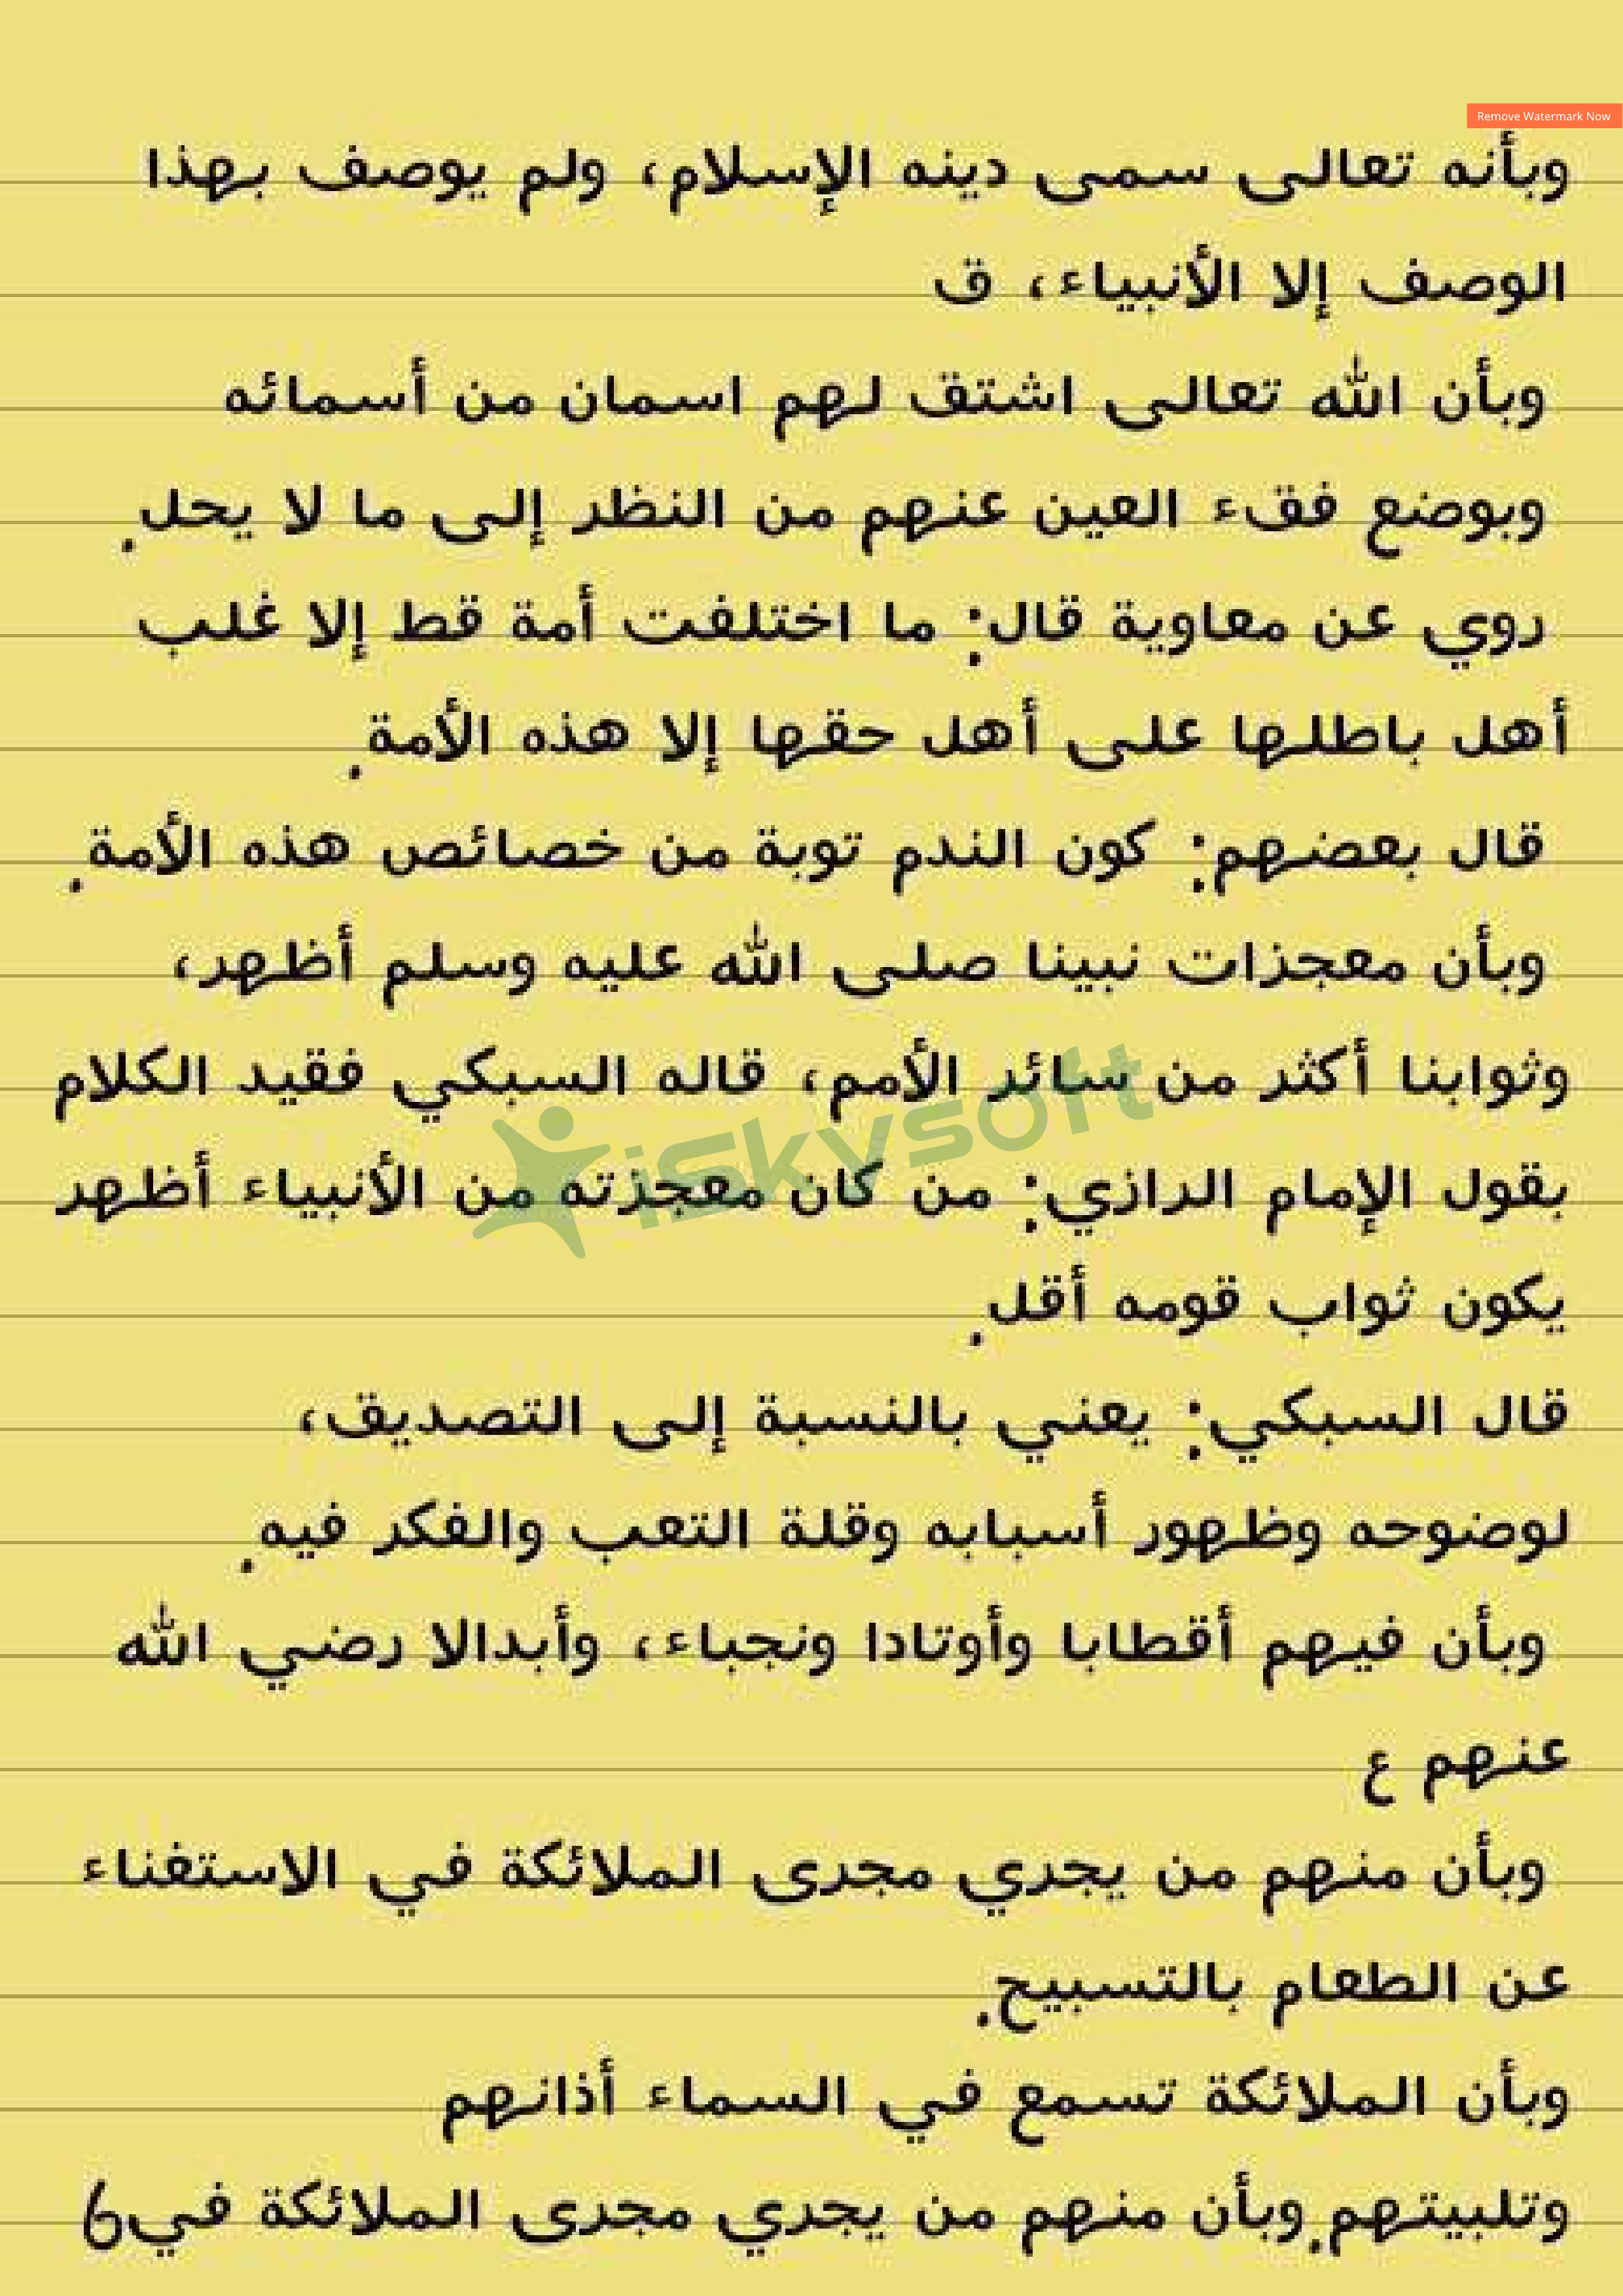 Remove Watermark Now
وبأنه تعالى سمى دينه الإسلام، ولم يوصف بهذا
الوصف إلا الأنبياء، ق
وبأن الله تعالى اشتق لهم اسمان من أسمائه
وبوضع فقء العين عنهم من النظر إلى ما لا يحل.
روي عن معاوية قال: ما اختلفت أمة قط إلا غلب
أهل باطلها على أهل حقها إلا هذه الأمة.
قال بعضهم: كون الندم توبة من خصائص هذه الأمة.
وبأن معجزات نبينا صلى الله عليه وسلم أظهر،
وثوابنا أكثر من سائر الأمم، قاله السبكي فقيد الكلام
بقول الإمام الرازي: من كان معجزته من الأنبياء أظهر
يكون ثواب قومه أقل.
قال السبكي: يعني بالنسبة إلى التصديق،
لوضوحه وظهور أسبابه وقلة التعب والفكر فيه.
وبأن فيهم أقطابا وأوتادا ونجباء، وأبدالا رضي الله
عنهم ع
وبأن منهم من يجري مجرى الملائكة في الاستغناء
عن الطعام بالتسبيح.
وبأن الملائكة تسمع في السماء أذانهم
وتلبيتهم.وبأن منهم من يجري مجرى الملائكة في6
iskysoft